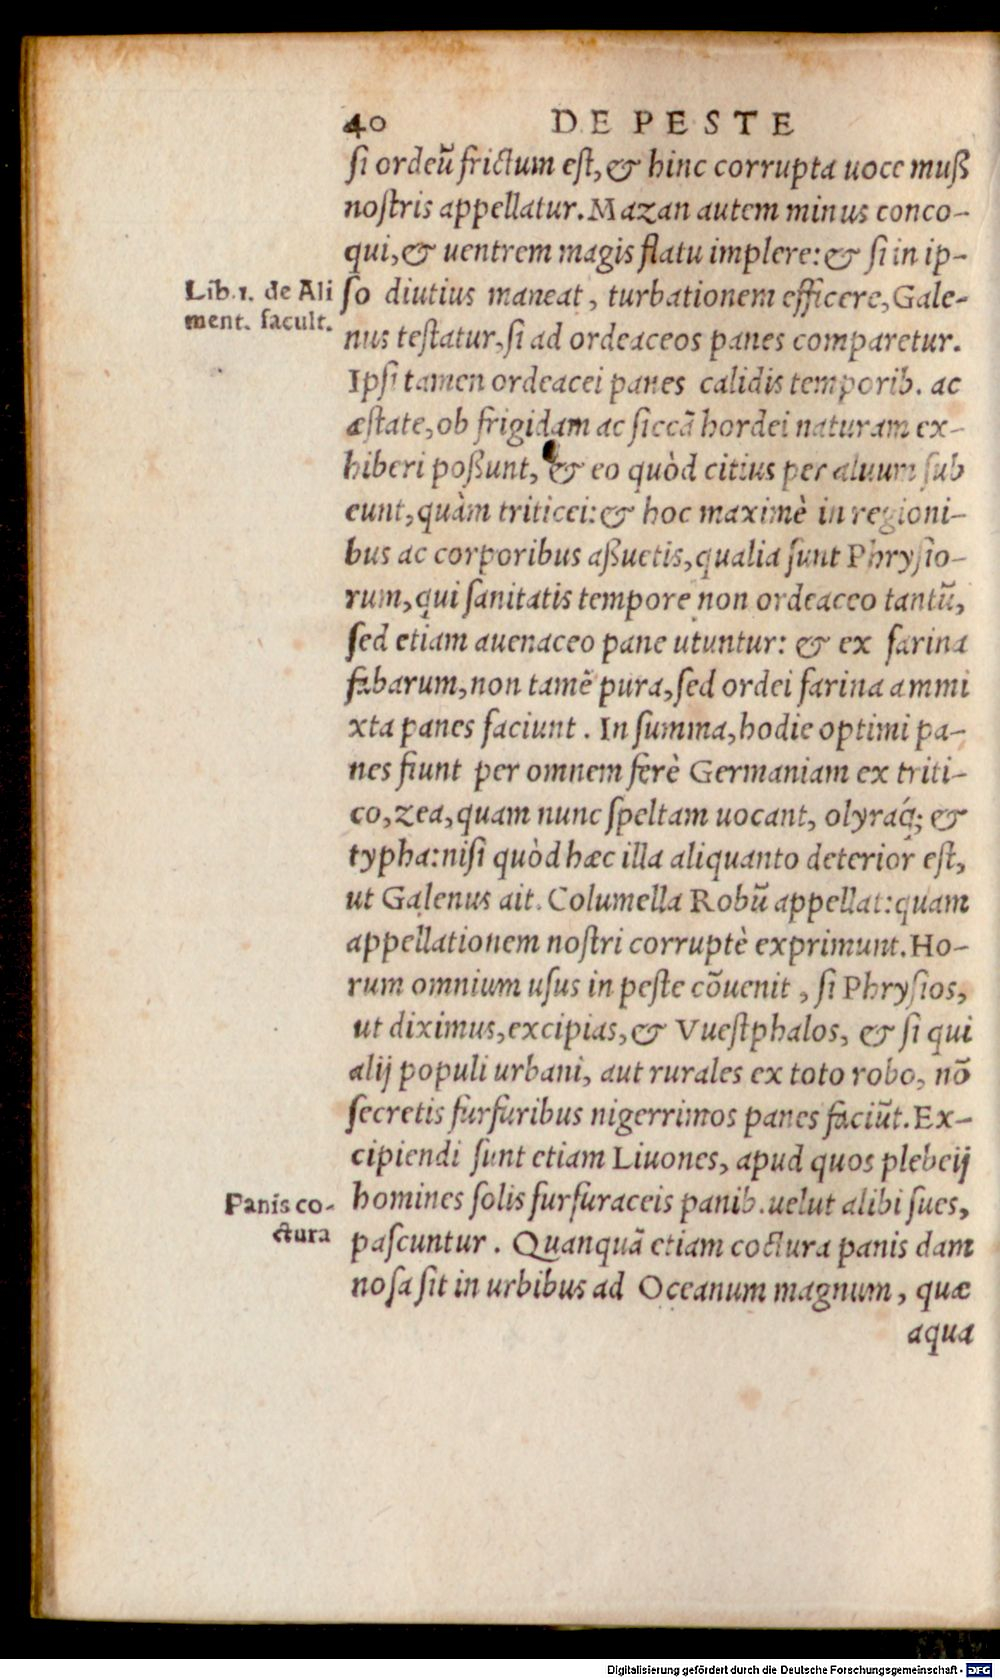 40 DE PESTE
si ordeũ frictum est, & hinc corrupta uoce muß
nostris appellatur. Mazan autem minus conco-
qui, & uentrem magis flatu implere: & si in ip-
Lib. 1. de Ali
ment. facult.
so diutius maneat, turbationem efficere, Gale-
nus testatur, si ad ordeaceos panes comparetur.
Ipsi tamen ordeacei panes calidis temporib. ac
æstate, ob frigidam ac siccã hordei naturam ex-
hiberi poßunt, & eo quòd citius per aluum sub
eunt, quàm triticei: & hoc maximè in regioni-
bus ac corporibus aßuetis, qualia sunt Phrysio-
rum, qui sanitatis tempore non ordeaceo tantũ,
sed etiam auenaceo pane utuntur: & ex farina
fabarum, non tamẽ pura, sed ordei farina ammi
xta panes faciunt. In summa, hodie optimi pa-
nes fiunt per omnem ferè Germaniam ex triti-
co, zea, quam nunc speltam uocant, olyraq́; &
typha: nisi quòd hæc illa aliquanto deterior est,
ut Galenus ait. Columella Robũ appellat: quam
appellationem nostri corruptè exprimunt. Ho-
rum omnium usus in peste cõuenit, si Phrysios,
ut diximus, excipias, & Vuestphalos, & si qui
alij populi urbani, aut rurales ex toto robo, nõ
secretis furfuribus nigerrimos panes faciũt. Ex-
cipiendi sunt etiam Liuones, apud quos plebeij
Panis co-
ctura
homines solis furfuraceis panib. uelut alibi sues,
pascuntur. Quanquã etiam coctura panis dam
nosa sit in urbibus ad Oceanum magnum, quæ
aqua
Digitalisierung gefördert durch die Deutsche Forschungsgemeinschaft - DFG